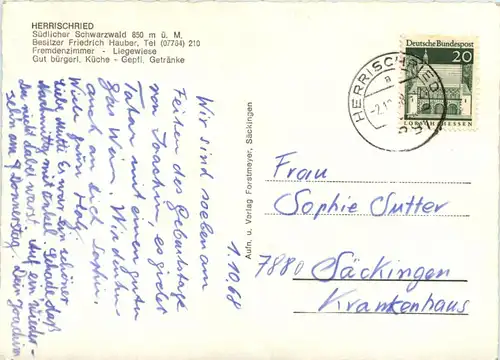 HERRISCHRIED
Südlicher Schwarzwald 850 m ü. M.
Besitzer Friedrich Hauber, Tel (07764) 210
Fremdenzimmer - Liegewiese
Gut bürgerl. Küche - Gepfl. Getränke
Deutsche Bundespost
20
LORSCH HESSEN
HERRISCHRIED
a
1.10.68
Wir sind soeben am
Feiern des Geburtstags
von Joachim, es gibt
Tatar mit einem guten
Glas Wein. Wir denken
auch an dich, Sophie.
Liebe Mutti! Es war ein schöner
Nachmittag mit Onkel. Schade daß
du nicht dabei warst. Auf ein Wieder-
sehn am Donnerstag. Dein Joachim
Aufn. u. Verlag Forstmeyer, Säckingen
Frau
Sophie Sutter
7880 Säckingen
Krankenhaus